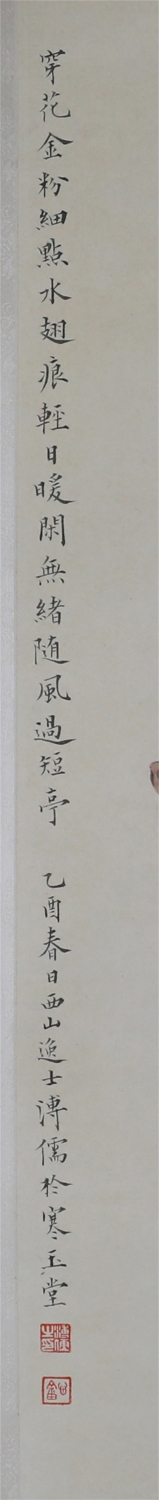 穿花金粉細點水翅痕輕日暖閑無緒随風過短亭 乙酉春日西山逸士溥儒於寒玉堂